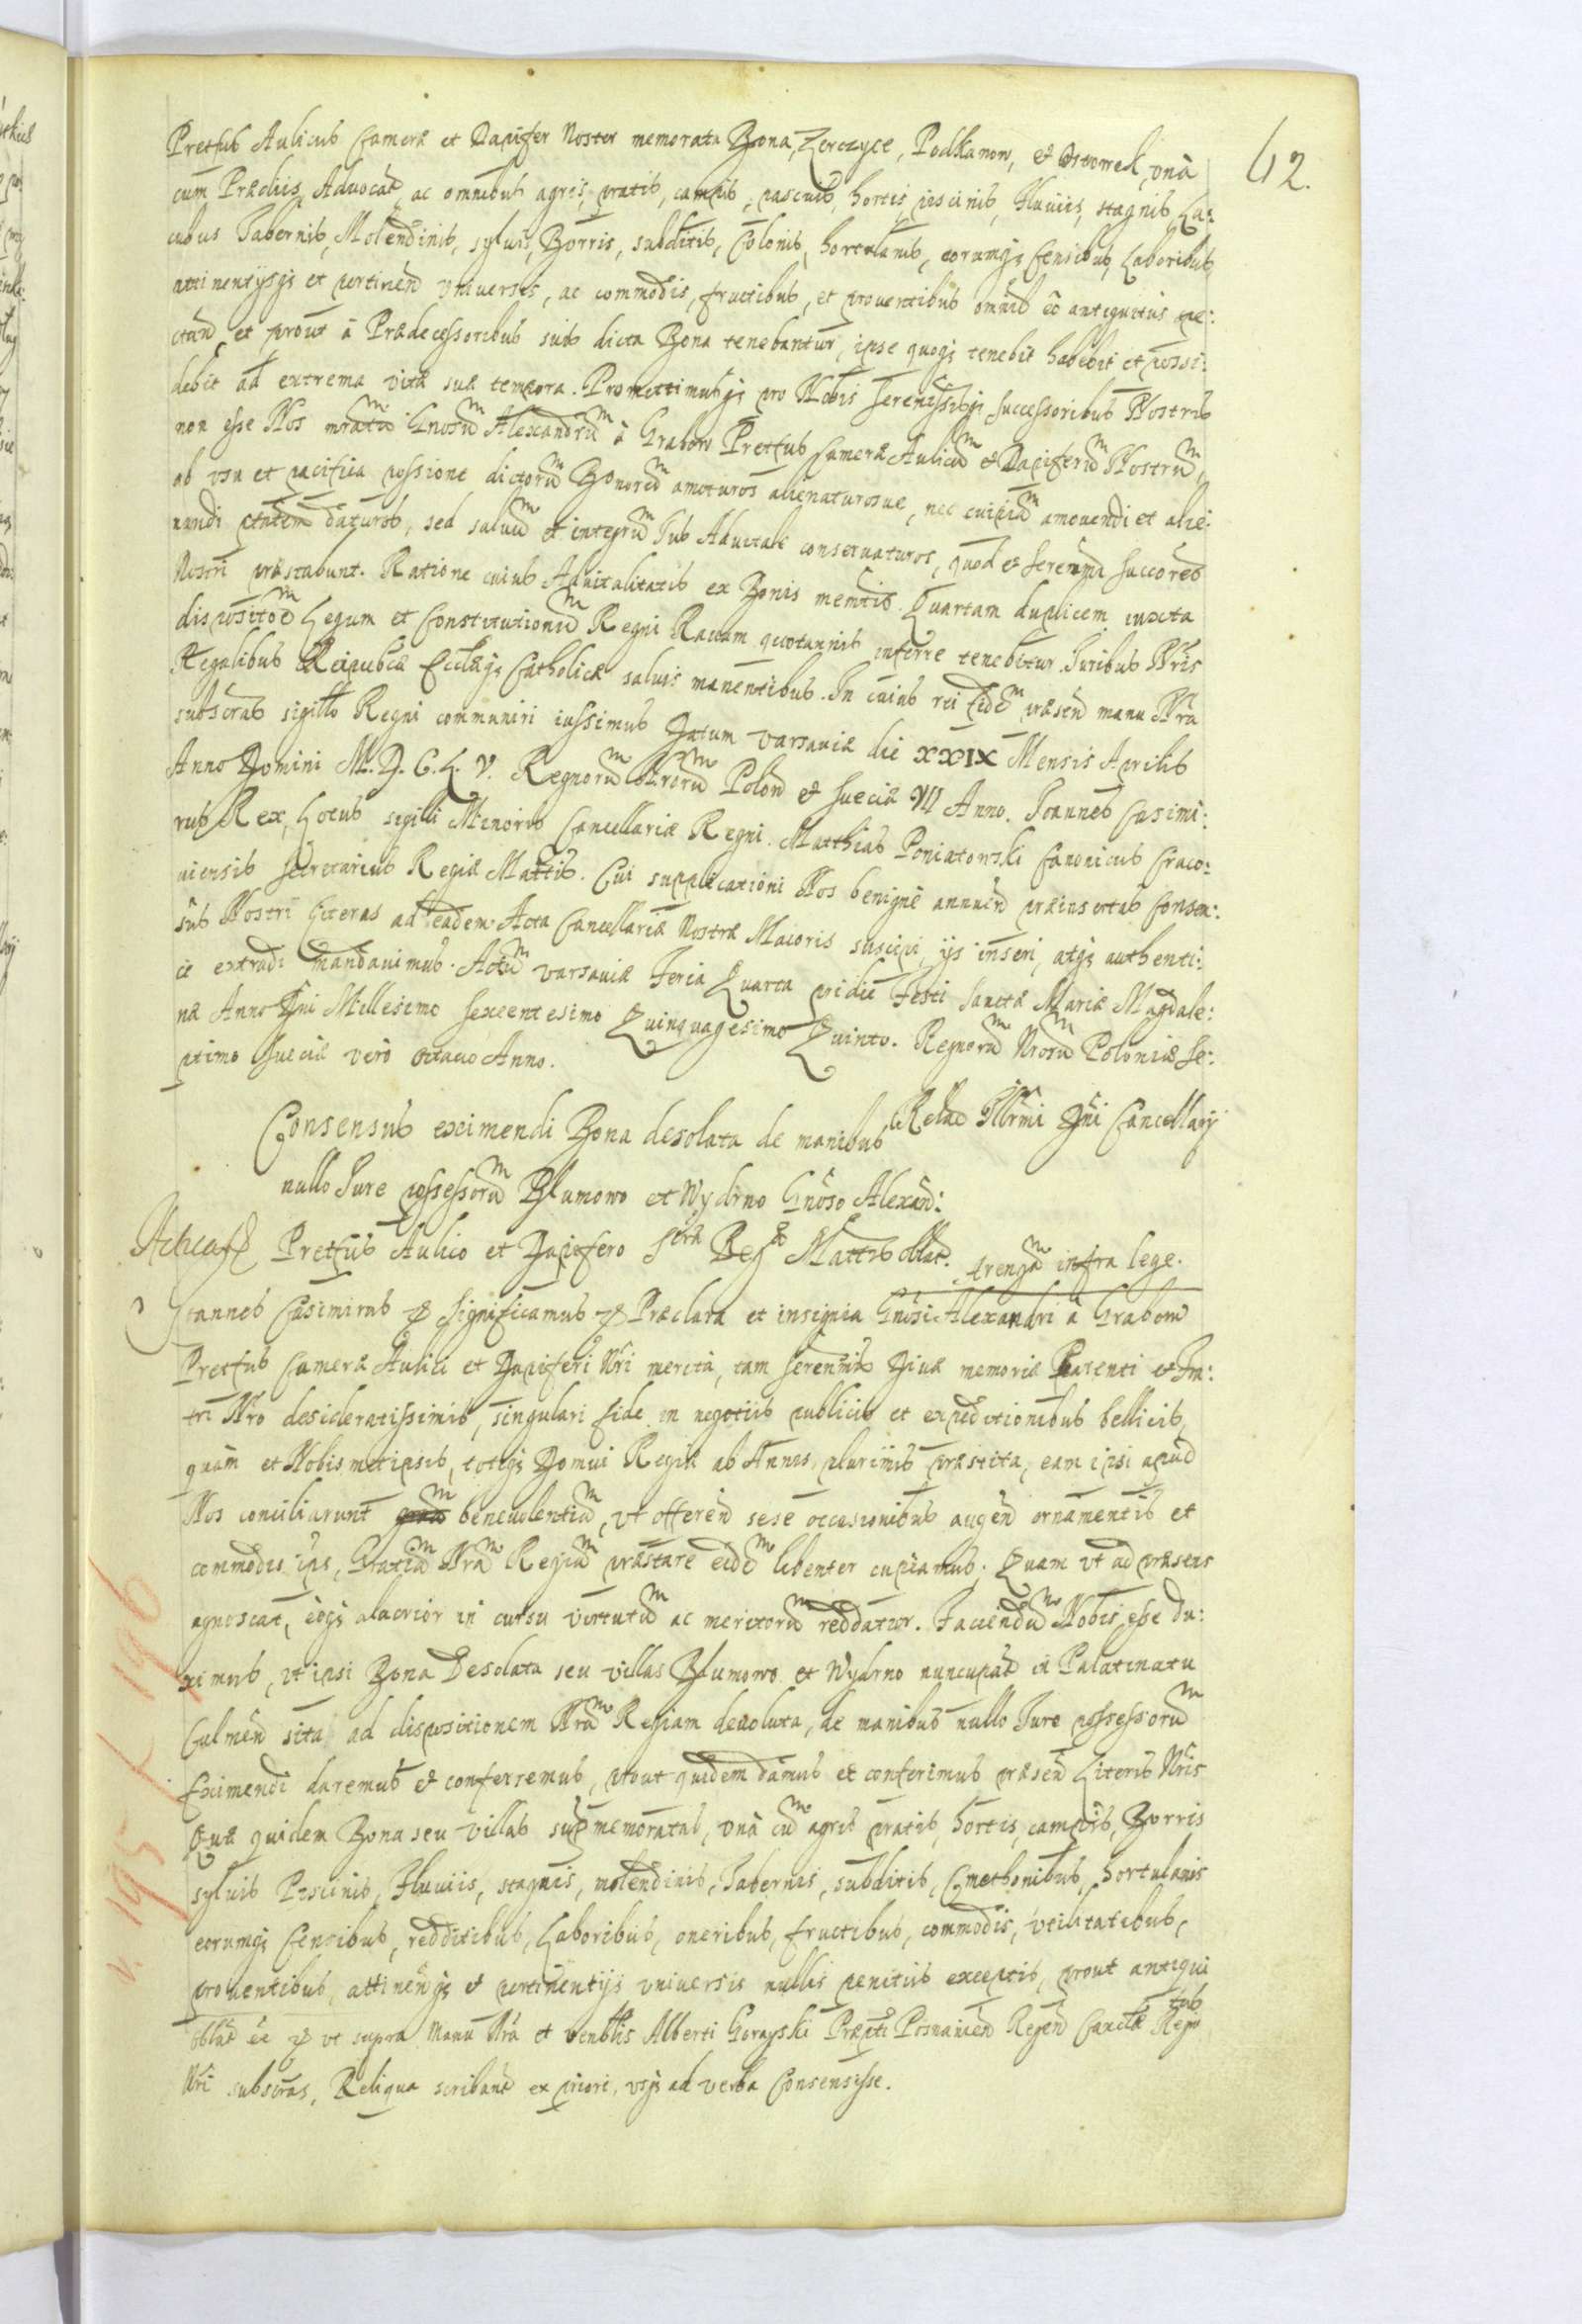 42.
Pretfus Aulicus Cameræ et Dapifer Noster memorata Bona, Zerczyce, Podkanow, et Ostrowek, unà
cum Prædiis, Advocat, ac omnibus agris, pratis, campis, pascuis, hortis, piscinis, Fluviis, stagnis La:
cubus Tabernis, Molendinis, sylvis, Borris, subditis, Colonis, hortulanis, eorumq3 Censibus, Laboribus,
attinentijsq3 et pertinen universis, ac commodis, fructibus, et proventibus omnib eò antiquitus spe:
ctan, et prout à Prædecessoribus suis dicta Bona tenebantur, ipse quoq3 tenebit habebit et possi:
debit ad extrema vitæ suæ tempora. Promittimusq3 pro Nobis Serenissisq3 Successoribus Nostris
non esse Nos mratũ Gnosũ Alexandrũ à Grabow Pretfus Cameræ Aulicũ et Dapiferũ Nostrũ,
ab usu et pacifica possione dictorũ Bonorũ amoturos alienaturosue, nec cuipiã amouendi et alie:
nandi ptatem daturos, sed saluũ et integrũ Ius Aduitale conseruaturos, quod et Serenmi Succores
Nostri præstabunt. Ratione cuius Aduitalitatis ex Bonis memtis Quartam duplicem iuxta
dispositoẽ Legum et Constitutionũ Regni Rauam quotannis inferre tenebitur. Iuribus Nris
Regalibus Reipubcæ Ecclæq3 Catholicæ saluis manentibus. In cuius rei fidẽ præsen manu Nra
subscras sigillo Regni communiri iussimus Datum Varsaviæ die XXIX Mensis Aprilis
Anno Domini M. D. C. L. V. Regnorũ Nrorũ Polon et Sueciæ VII Anno. Ioannes Casimi:
rus Rex, Locus sigilli Minoris Cancellariæ Regni. Matthias Poniatowski Canonicus Craco:
uiensis Secretarius Regiæ Mattis. Cui supplicationi Nos benignè annuen præinsertas Consen:
sus Nostri Literas ad eadem Acta Cancellariæ Nostræ Maioris suscipi, ijs inseri, atq3 authenti:
cè extradi mandauimus. Actũ Varsauiæ Feria Quarta pridie Festi Sanctæ Mariæ Magdale:
næ Anno Dni Millesimo Sexcentesimo Quinquagesimo Quinto. Regnorũ Nrorũ Poloniæ Se:
ptimo Sueciæ verò octauo Anno.
Relao Illrmi Dni Cancellarij
Consensus eximendi Bona desolata de manibus
nullo Iure possessorũ Blumowo et Wydrno Gnoso Alexan:
Pretfus Aulico et Dapifero Scræ Regæ Mattis oblat. Arengã infra lege.
Ioannes Casimirus &c Significamus &c Præclara et insignia Gnosi Alexandri à Grabow
Pretfus Cameræ Aulici et Dapiferi Nri merita, tam Serenmis Divæ memoriæ Parenti et Fra:
tri Nro desideratissimis, singulari fide in negotiis publicis et expeditionibus bellicis,
quàm et Nobismetipsis, totiq3 Domui Regiæ ab Annis plurimis præstita, eam ipsi apud
Nos conciliarunt benevolentiã, ut offeren sese occasionibus augen ornamentis et
commodis ips, Gratiã Nrã Regiã præstare eidẽ libenter cupiamus. Quam ut ad præsens
agnoscat, eòq3 alacrior in cursu virtutũ ac meritorũ reddatur. Faciendũ Nobis esse du:
ximus, ut ipsi Bona Desolata seu villas Blumowo et Wydrno nuncupat in Palatinatu
Culmen sita ad dispositionem Nrã Regiam devoluta, de manibus nullo Iure possessorũ
Eximendi daremus et conferremus, prout quidem damus et conferimus præsen Literis Nris
Quæ quidem Bona seu villas supmemoratas, unà cũ agris pratis, hortis, campis, Borris
sylvis Piscinis, Fluviis, stagnis, molendinis, Tabernis, subditis, Cmethonibus, hortulanis
eorumq3 Censibus, redditibus, Laboribus, oneribus, fructibus, commodis, utilitatibus,
proventibus, attinenq3 et pertinentijs universis nullis penitus exceptis, prout antiqui
tus
&c ut supra Manu Nra et venblis Alberti Gorayski Præpti Posnanien Regen Cancræ Regni
Nri subscras, Reliqua scribant ex priori, usq3 ad verba Consensisse.
v. 195 f 196